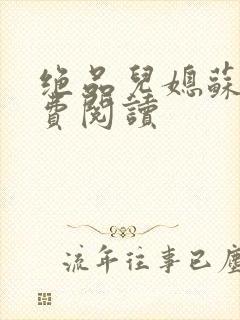 绝品兒媳蘇
費閱讀
流年往事已塵